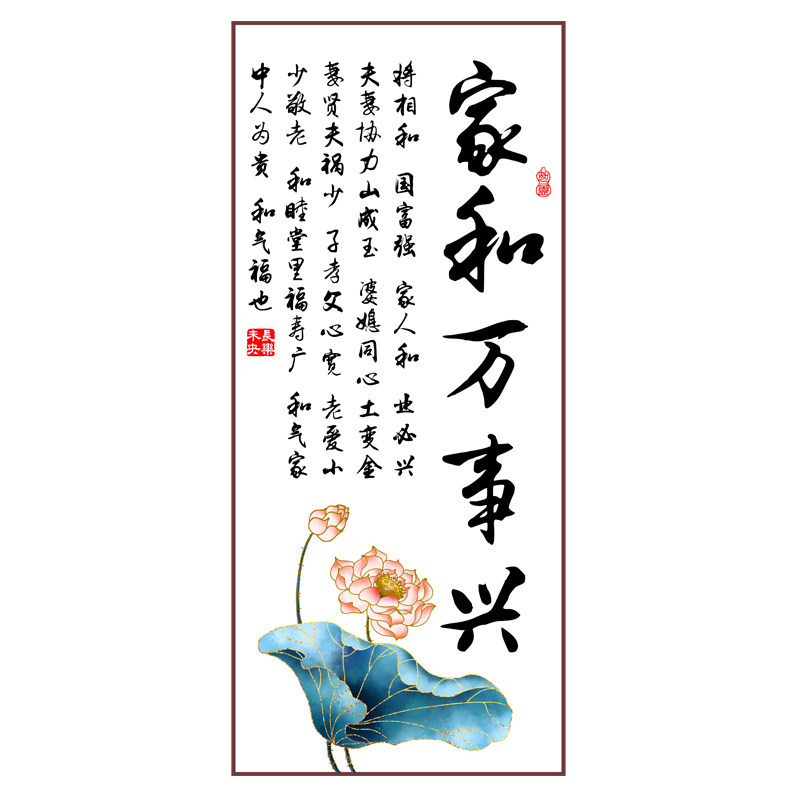 家和万事兴
将相和 国富强 家人和 业必兴
夫妻协力山成玉 婆媳同心土变金
妻贤夫祸少 子孝父心宽 老爱小
少敬老 和睦堂里福寿广 和气家
中人为贵 和气福也
長樂未央